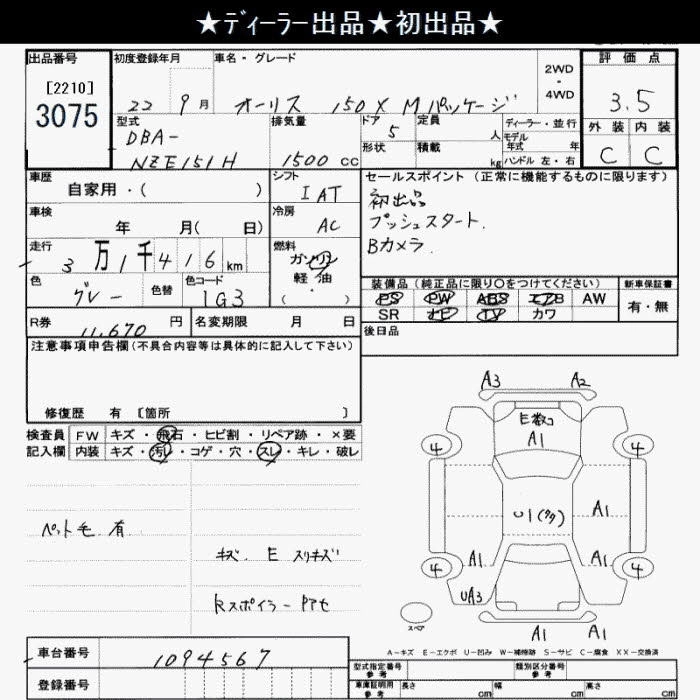 ★ディーラー出品★初出品★
出品番号
[2210]
3075
初度登録年月
22 9月
車名・グレード
オーリス 150X Mパッケージ
2WD・4WD
評価点
3.5
外装 内装
C C
型式
DBA-
NZE151H
排気量
1500 cc
ドア
5
形状
定員
人
積載
kg
ディーラー・並行
モデル年式 年
ハンドル 左・右
車歴
自家用・( )
シフト
IAT
車検
年 月( 日)
冷房
AC
走行
3万1千416km
燃料
ガソリン
軽油
・( )
色
グレー
色替
色コード
1G3
セールスポイント (正常に機能するものに限ります)
初出品
プッシュスタート.
Bカメラ.
装備品 (純正品に限り○をつけてください)
PS PW ABS エアB AW
SR ナビ TV カワ
新車保証書
有・無
R券
11,670 円
名変期限 月 日
後日品
注意事項申告欄(不具合内容等は具体的に記入して下さい)
修復歴 有 〔箇所 〕
検査員記入欄
FW キズ・飛石・ヒビ割・リペア跡・×要
内装 キズ・汚レ・コゲ・穴・スレ・キレ・破レ
ペット毛 有.
キズ. E スリキズ
Rスポイラーアセ
A3 A2
E数コ
A1
4 4
U1(タタ)
A1
A1 A1
4 4
UA3
A1 A1
スペア
A-キズ E-エクボ U-凹み W-補修跡 S-サビ C-腐食 XX-交換済
車台番号
1094567
登録番号
型式指定番号
参考
類別区分番号
参考
車庫証明用
参考
長さ cm
幅 cm
高さ cm